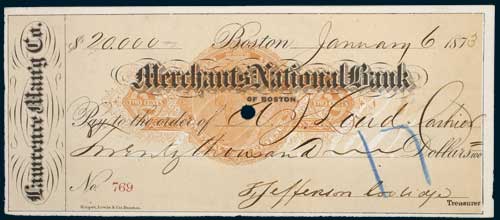 Lawrence Manfg Co.
$20,000— Boston January 6 1873
Merchants National Bank
OF BOSTON
Pay to the order of Loud Cashier
Twenty thousand Dollars
17
No 769
T Jefferson Coolidge
Treasurer